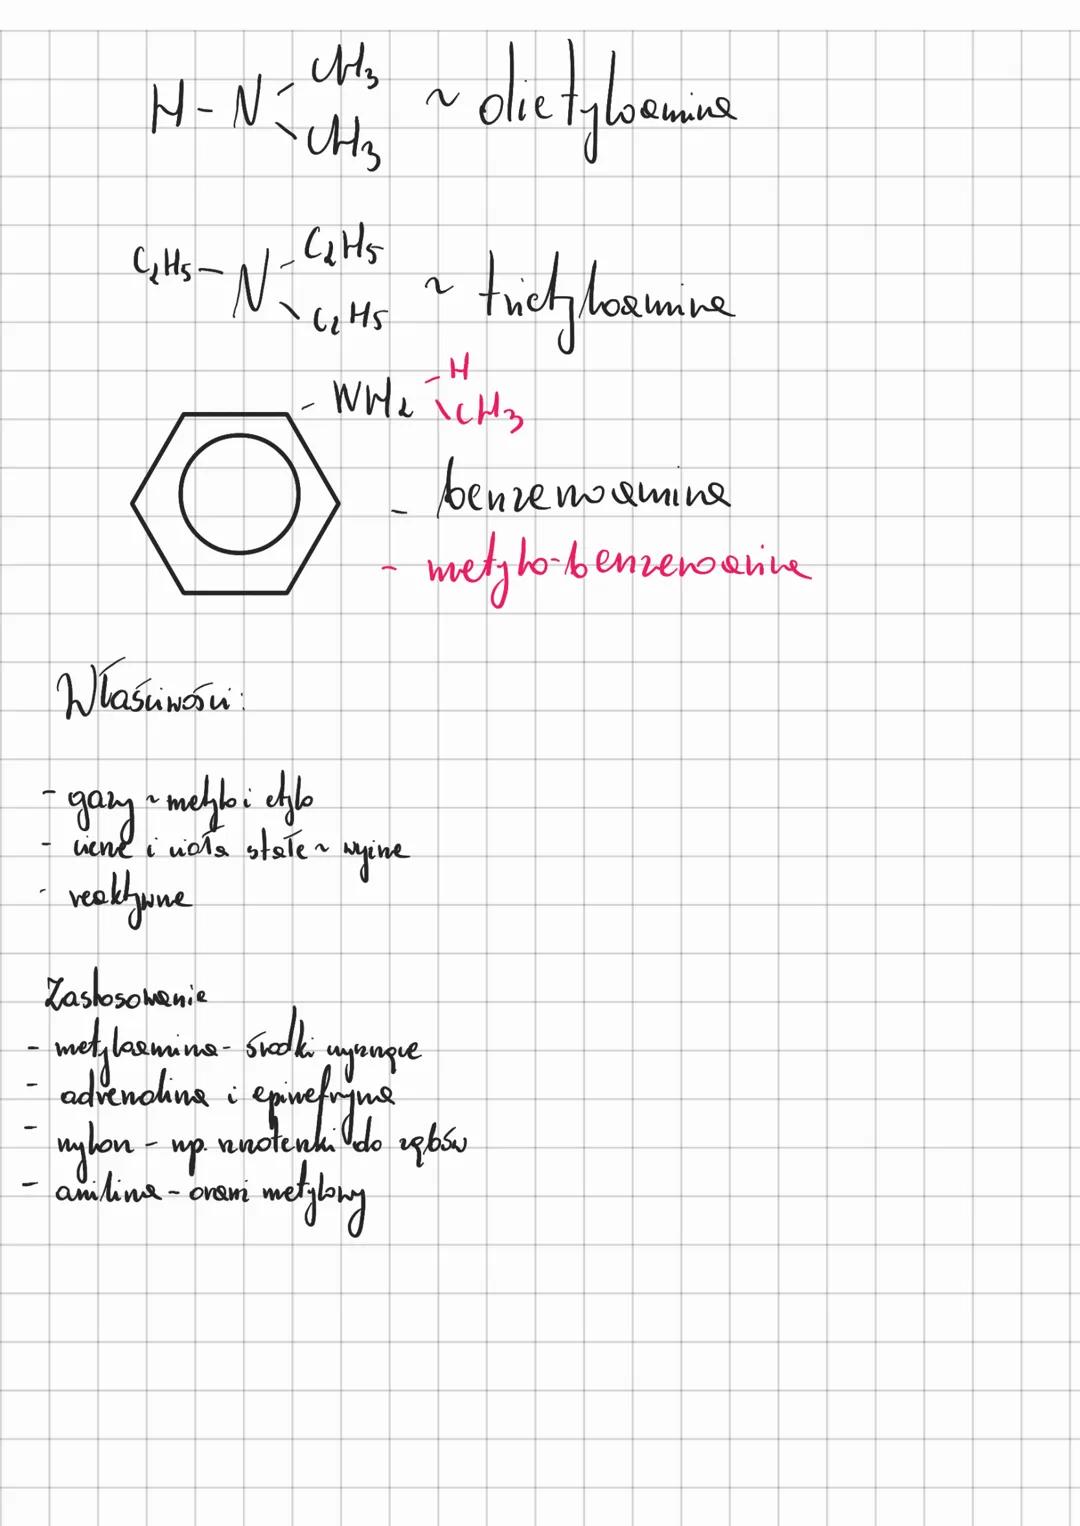 H-N CH3 CH3 ~ dietyloamina
C2H5-N C2H5 C2H5 ~ trietyloamina
- NH2 -H \CH3
- benzenoamina
- metylo-benzenoamina
Właściwości:
- gazy ~ metylo i etylo
- ciene i ciała stałe ~ wyższe
- reaktywne
Zastosowanie
- metyloamina - środki
- adrenalina i epinefryna
- nylon - np. szczoteczki do zębów
- anilina - oranż metylowy